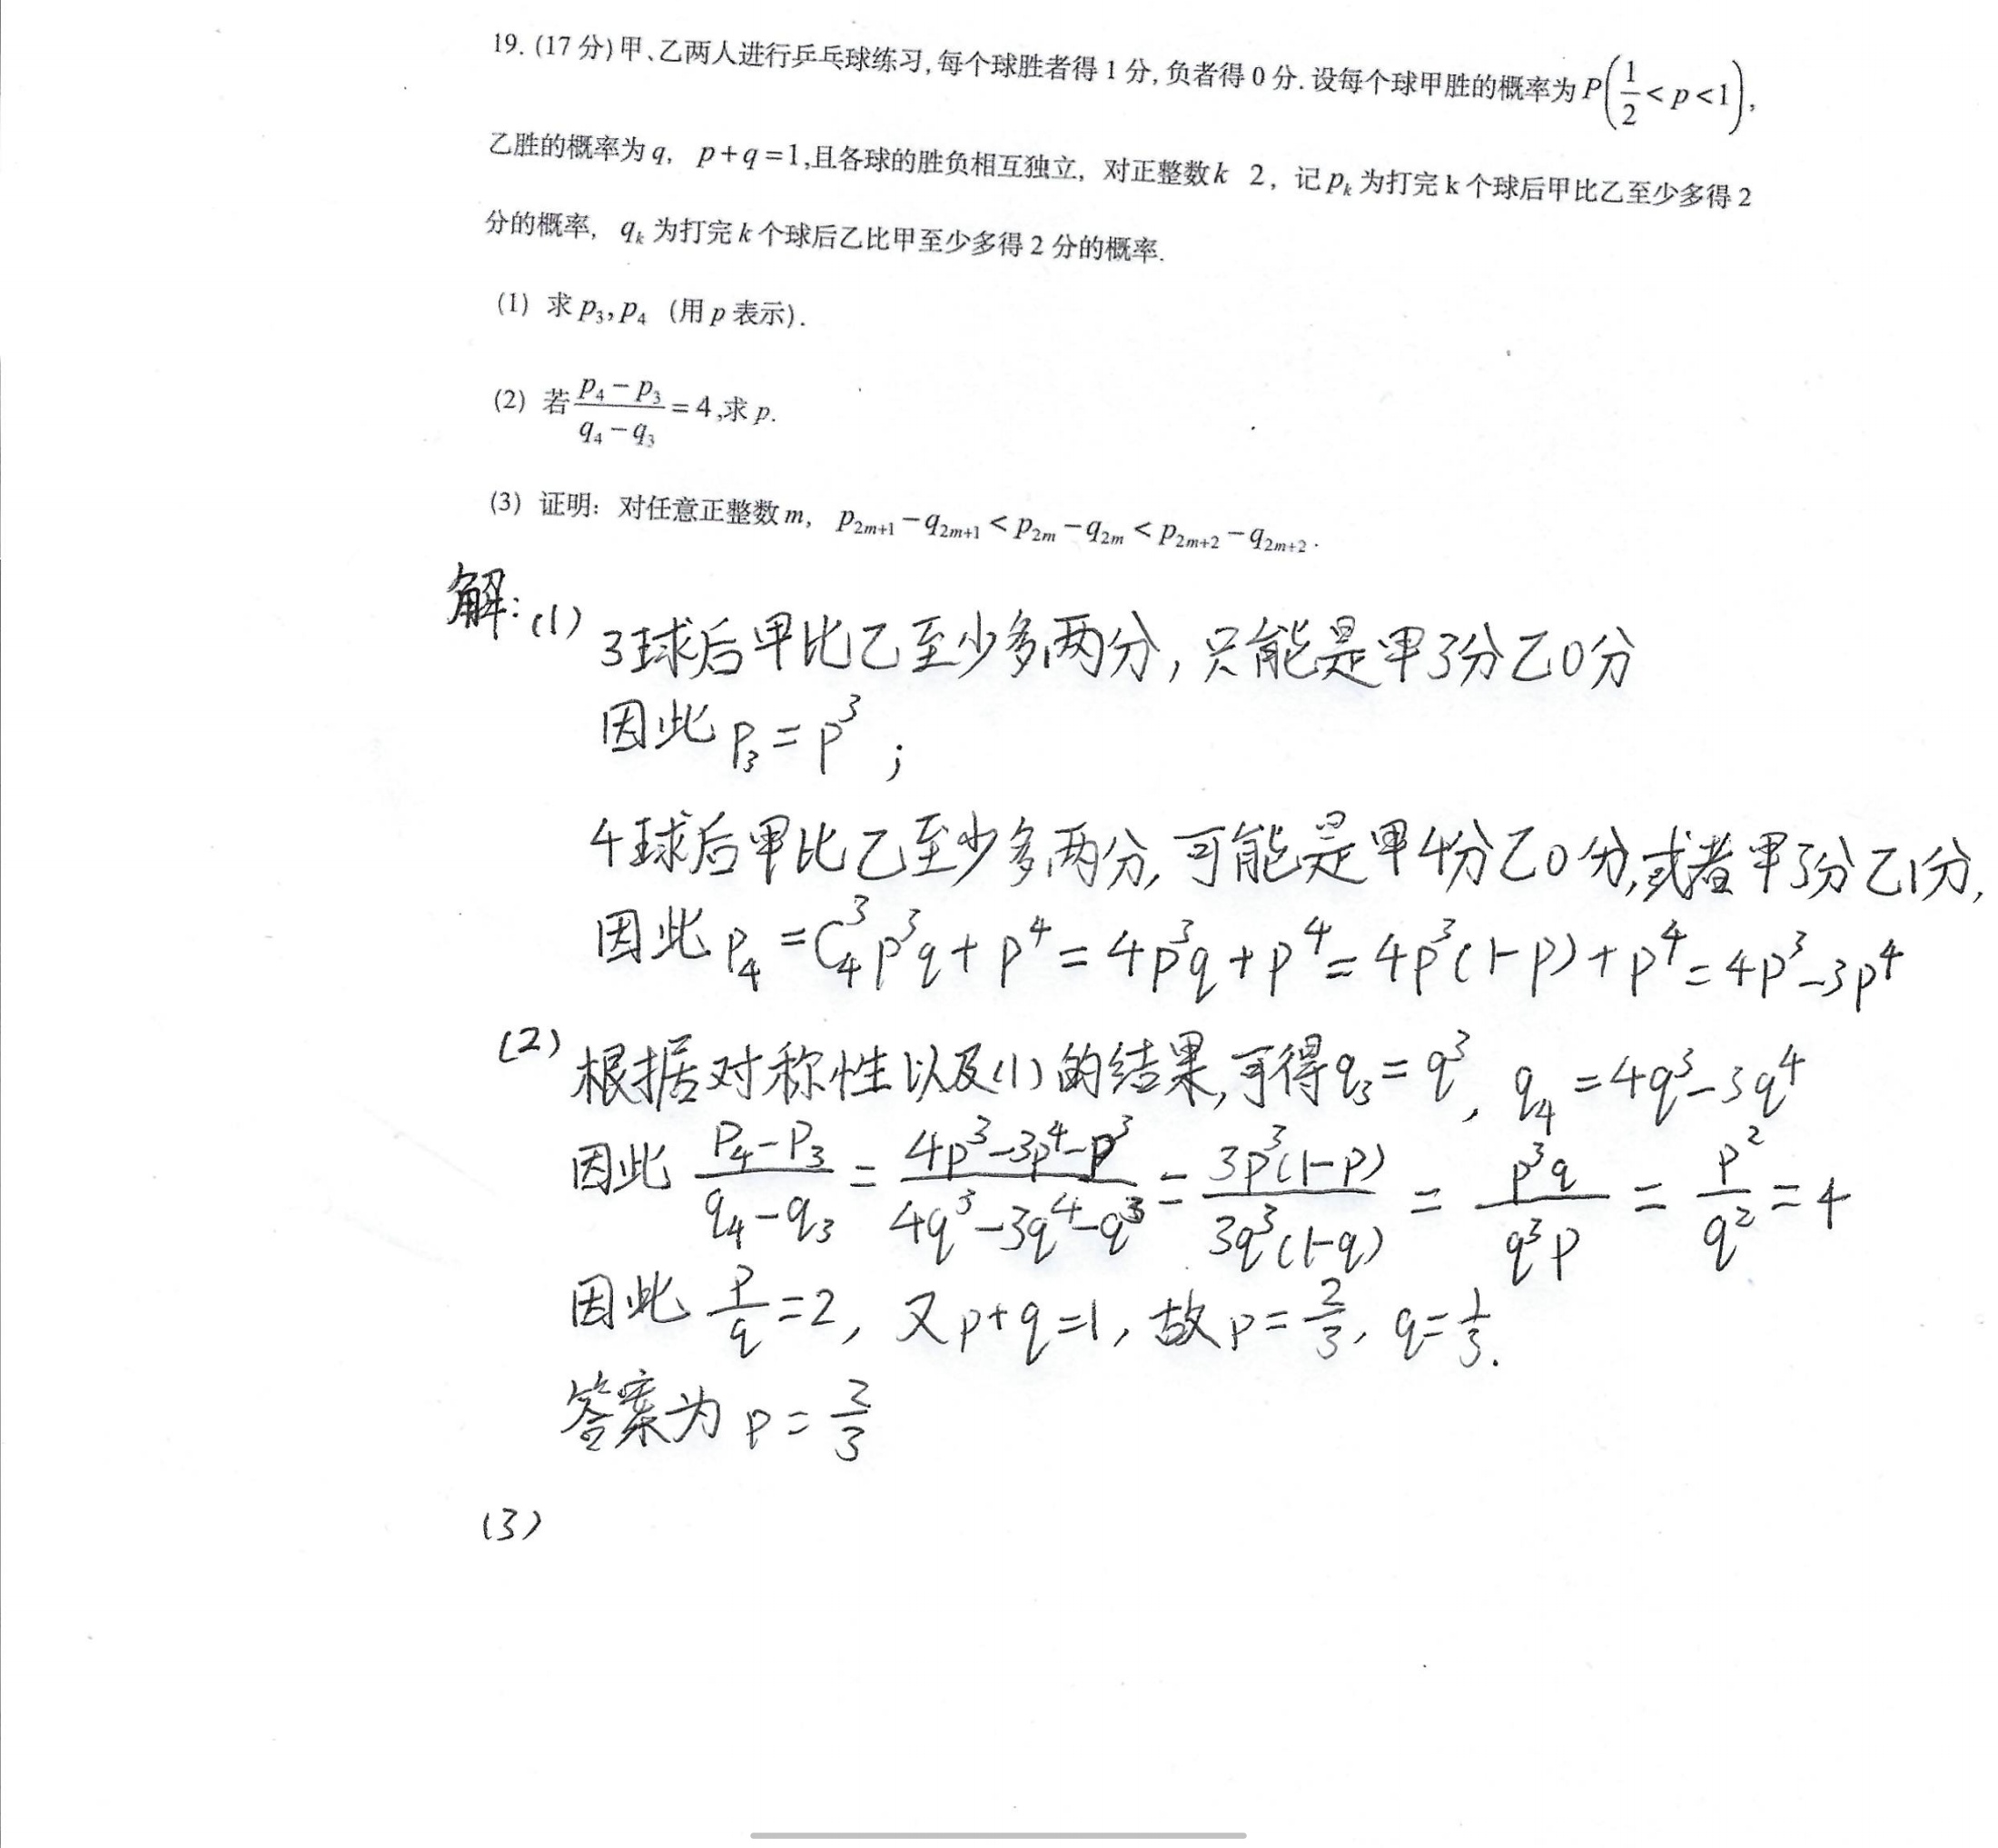 19. (17 分) 甲、乙两人进行乒乓球练习, 每个球胜者得 1 分, 负者得 0 分. 设每个球甲胜的概率为 P(1/2 < p < 1),
乙胜的概率为 q, p+q=1,且各球的胜负相互独立, 对正整数 k 2, 记 pₖ 为打完 k 个球后甲比乙至少多得 2
分的概率, qₖ 为打完 k 个球后乙比甲至少多得 2 分的概率.
(1) 求 p₃, p₄ (用 p 表示).
(2) 若 (p₄ − p₃)/(q₄ − q₃) = 4,求 p.
(3) 证明: 对任意正整数 m, p₂ₘ₊₁ − q₂ₘ₊₁ < p₂ₘ − q₂ₘ < p₂ₘ₊₂ − q₂ₘ₊₂ .
解: (1) 3球后甲比乙至少多两分, 只能是甲3分乙0分
因此 p₃ = p³ ;
4球后甲比乙至少多两分, 可能是甲4分乙0分,或者甲3分乙1分,
因此 p₄ = C₄³p³q + p⁴ = 4p³q + p⁴ = 4p³(1-p) + p⁴ = 4p³-3p⁴
(2) 根据对称性以及(1)的结果,可得 q₃ = q³, q₄ = 4q³-3q⁴
因此 (P₄-P₃)/(q₄-q₃) = (4p³-3p⁴-p³)/(4q³-3q⁴-q³) = 3p³(1-p)/3q³(1-q) = p³q/q³p = p²/q² = 4
因此 p/q = 2, 又 p+q=1, 故 p = 2/3, q = 1/3.
答案为 p = 2/3
(3)